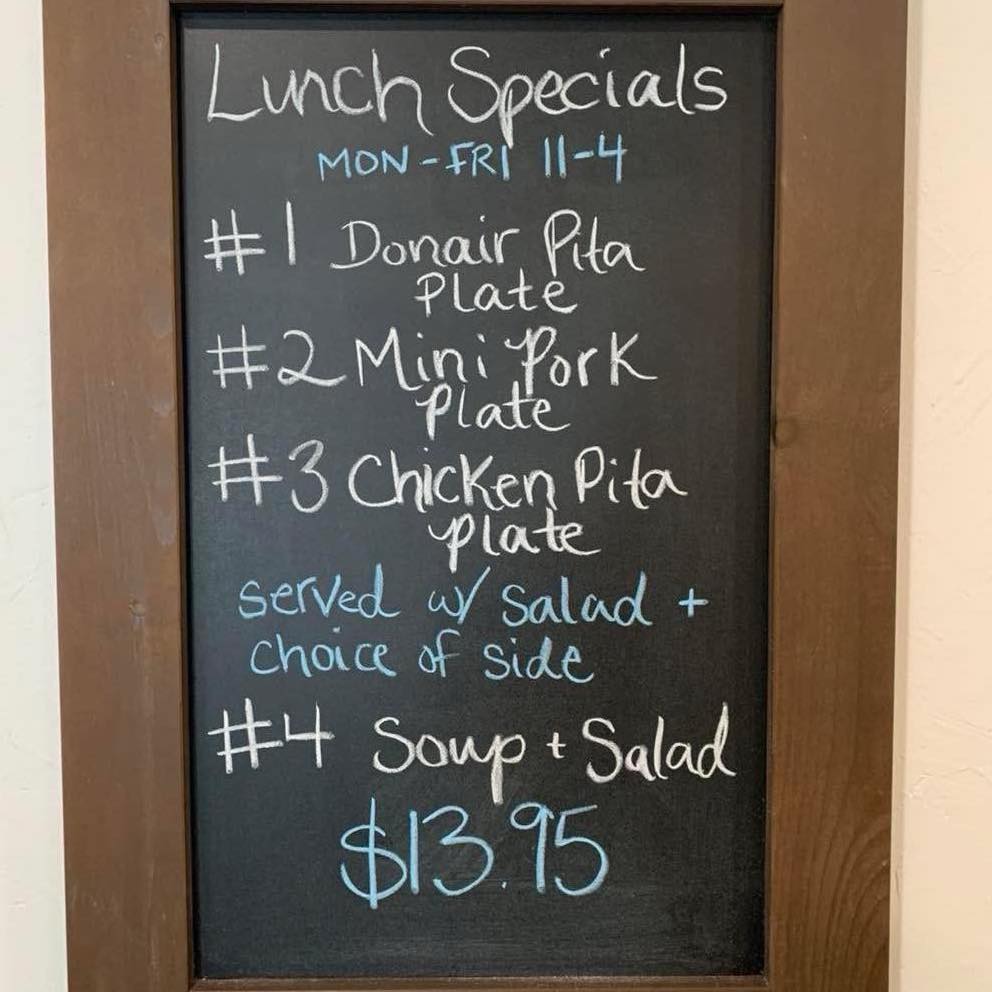 Lunch Specials
MON-FRI 11-4
#1 Donair Pita
Plate
#2 Mini Pork
Plate
#3 Chicken Pita
Plate
served w/ Salad +
choice of side
#4 Soup + Salad
$13.95